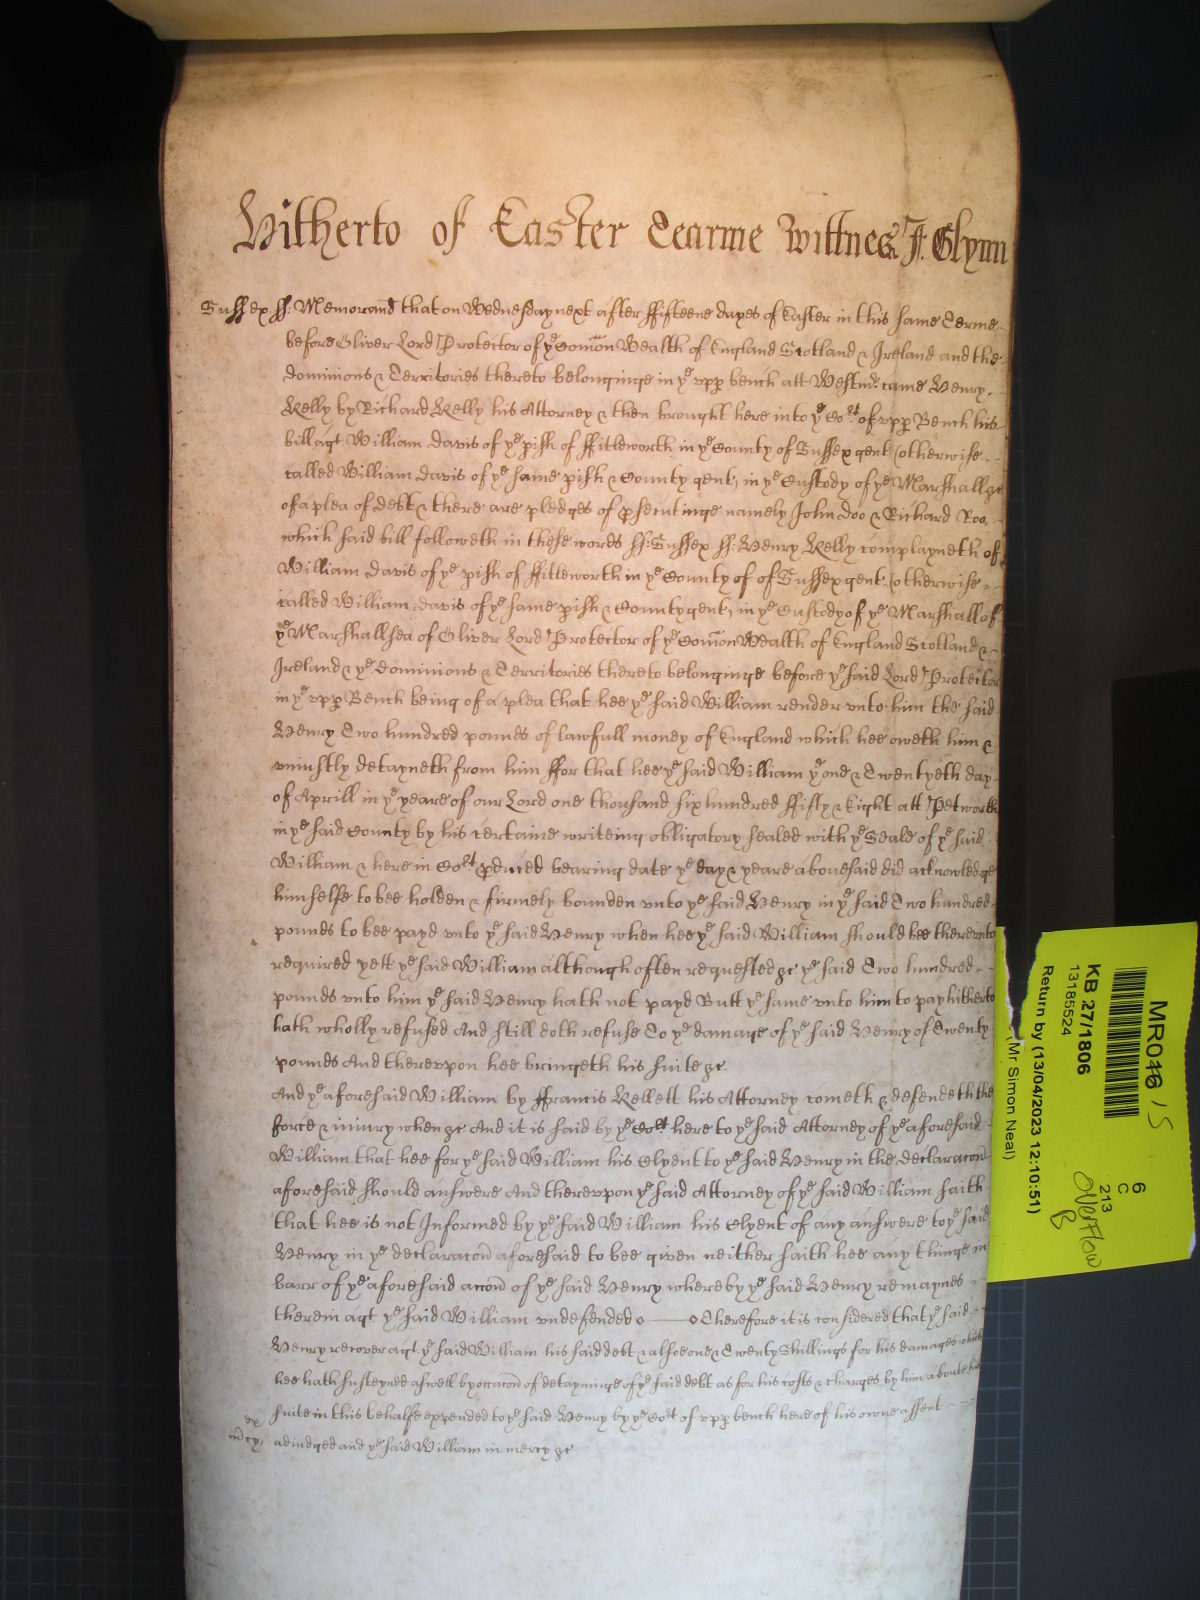 Hitherto of Easter Tearme Wittnes J. Glynn
Sussex ss: Memorand that on Wednesday next after ffifteene dayes of Easter in this same Terme
before Oliver Lord Protector of ye Com̄on Wealth of England Scotland & Ireland and the
dominions & Territories thereto belonginge in ye vpp bench att Westmr. came Henry
Kelly by Richard Kelly his Attorney & then brought here into ye Cort. of vpp Bench his
bill agt. William Davis of ye pish of ffittleworth in ye County of Sussex gent (otherwise
called William Davis of ye same pish & County gent) in ye Custody of ye Marshall &c
of a plea of debt & there are pledges of psecutinge namely John Doo & Richard Roo
which said bill followeth in these words ss: Sussex ss: Henry Kelly complayneth of
William Davis of ye pish of ffittleworth in ye County of of Sussex gent (otherwise
called William Davis of ye same pish & County gent) in ye Custody of ye Marshall of
ye Marshallsea of Oliver Lord Protector of ye Com̄on Wealth of England Scotland &
Ireland & ye dominions & Territories thereto belonginge before ye said Lord Protector
in ye vpp Bench being of a plea that hee ye said William render vnto him the said
Henry Two hundred pounds of lawfull money of England which hee oweth him &
vniustly detayneth from him ffor that hee ye said William ye one & Twentyeth day
of Aprill in ye yeare of our Lord one thousand six hundred ffifty & Eight att Petworth
in ye said County by his certaine writeing obligatory sealed with ye Seale of ye said
William & here in Cort pduced bearing date ye day & yeare abouesaid did acknowledge
himselfe to bee holden & firmely bounden vnto ye said Henry in ye said Two hundred
pounds to bee payd vnto ye said Henry when hee ye said William should bee therevnto
required yett ye said William although often requested &c ye said Two hundred
pounds vnto him ye said Henry hath not payd Butt ye same vnto him to pay hitherto
hath wholly refused And still doth refuse To ye damage of ye said Henry of Twenty
pounds And therevpon hee bringeth his suite &c
And ye aforesaid William by ffrancis Kellett his Attorney cometh & defendeth the
force & iniury when &c And it is said by ye Cort here to ye said Attorney of ye aforesaid
William that hee for ye said William his Clyent to ye said Henry in the declaracon
aforesaid should answere And therevpon ye said Attorney of ye said William saith
that hee is not Informed by ye said William his Clyent of any answere to ye said
Henry in ye declaracon aforesaid to bee given neither saith hee any thinge in
barr of ye aforesaid accon of ye said Henry whereby ye said Henry remaynes
therein agt ye said William vndefended Therefore it is considered that ye said
Henry recover agt. ye said William his said debt & alsoe one & Twenty Shillings for his damages which
hee hath susteyned aswell by occacon of detayninge of ye said debt as for his costs & charges by him aboute his
suite in this behalfe expended to ye said Henry by ye Cort of vpp bench here of his owne assent
adiudged and ye said William in mercy &c
in mcy
MR046 / 5
KB 27/1806
13185524
Return by (13/04/2023 12:10:51)
(Mr Simon Neal)
6
C
213
overflow
B